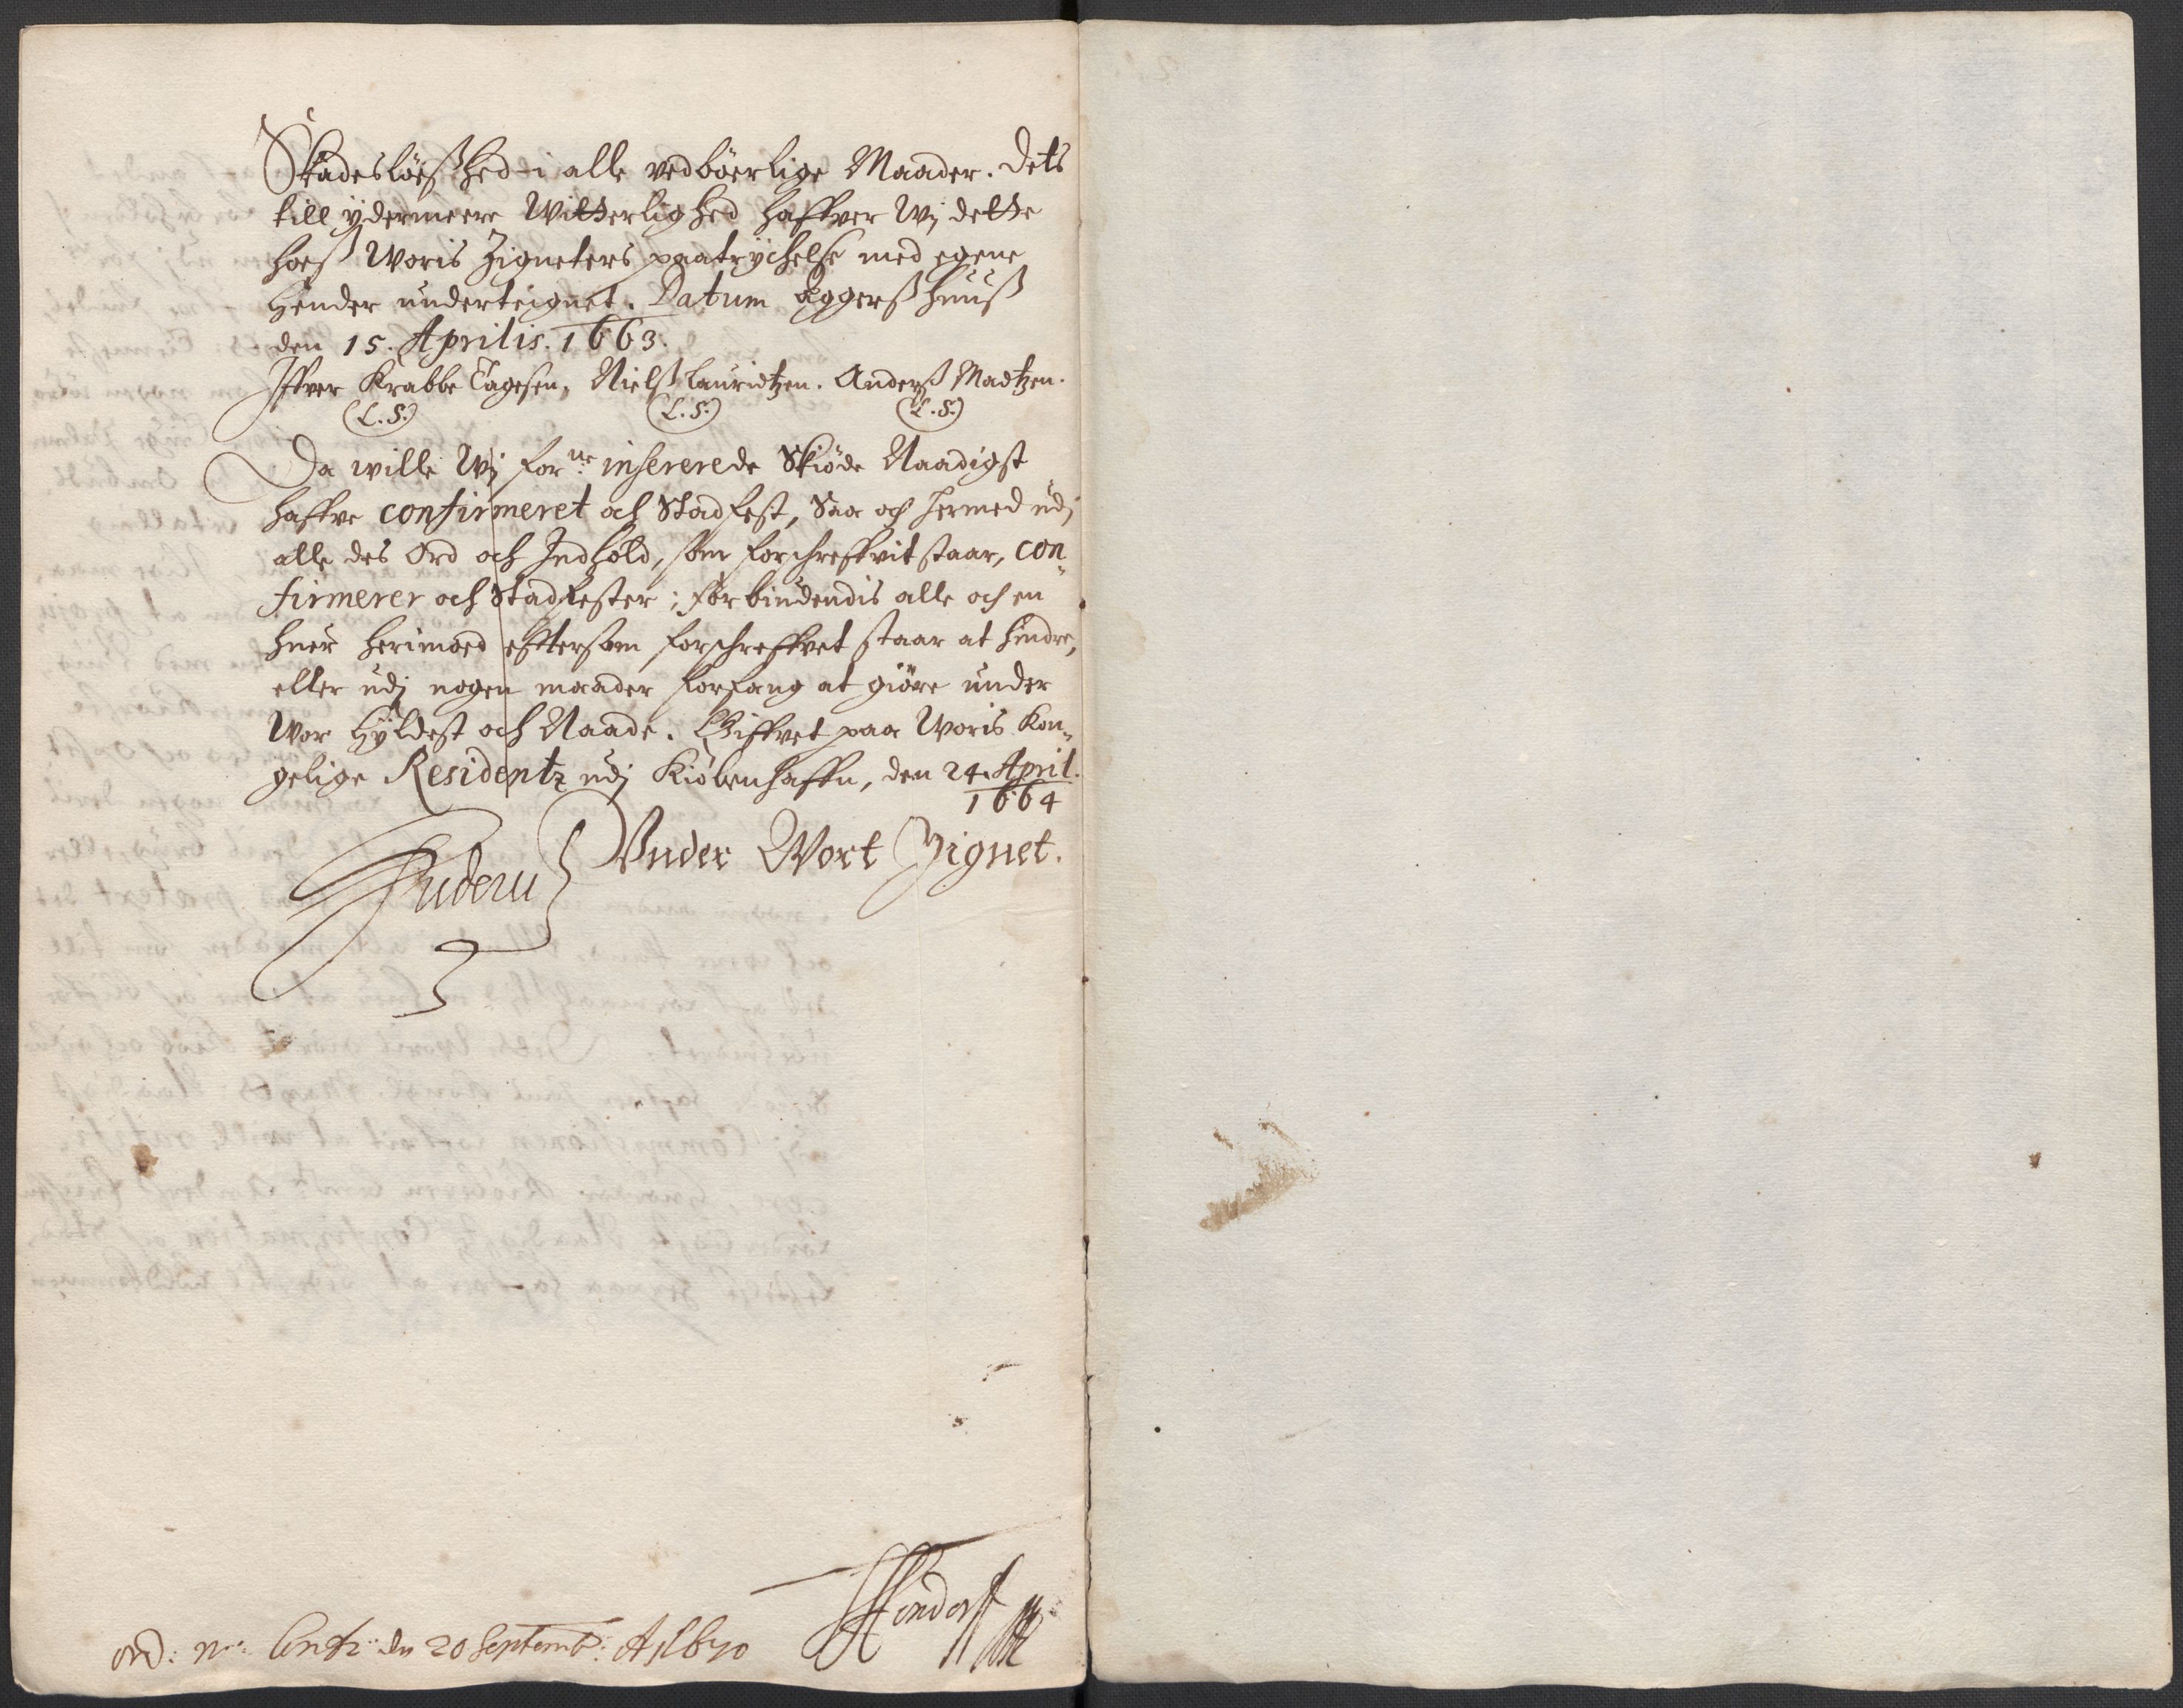 Skadesløeszhed i alle vedbøerlige Maader. Dets
till ÿdermeere Witterlighed haffver Wj dette
hoesz Woris Zigneters paatrÿchelse med egene
Hender underteignet. Datum Aggerszhuusz
den 15. Aprilis. 1663.
Iffver Krabbe Tagesen, Nielsz Lauridtzen. Andersz Madtzen.
(L.S.) (L.S.) (L.S.)
Da wille Wj forne insererede Skiøde Naadigst
haffve confirmeret och Stadfest, Saa och hermed udj
alle des Ord och Indhold, som forschreffvit staar, con„
firmerer och Stadfester; forbindendis alle och en
hver herimoed efftersom forschreffvet staar at hindre,
eller udj nogen maader forfang at giøre under
Wor Hÿldest och Naade. Giffvet paa Woris Kon„
gelige Residentz udj Kiøbenhaffn, den 24. April.
1664
Vnder Wort Zignet.
Friderich
den 20 Septemb: Ao 1670